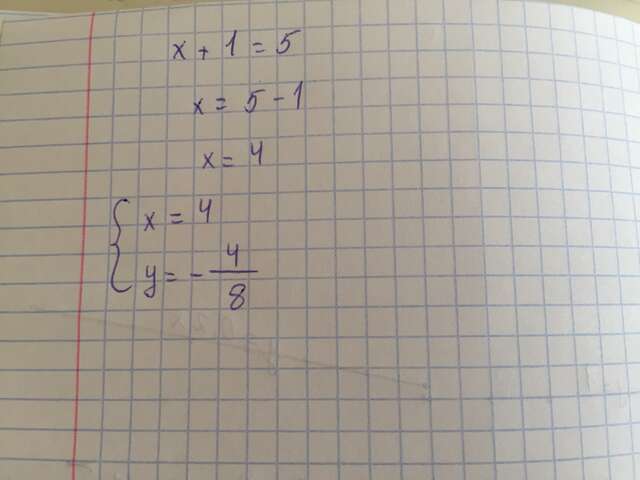 x + 1 = 5
x = 5 - 1
x = 4
{ x = 4
y = - 4/8